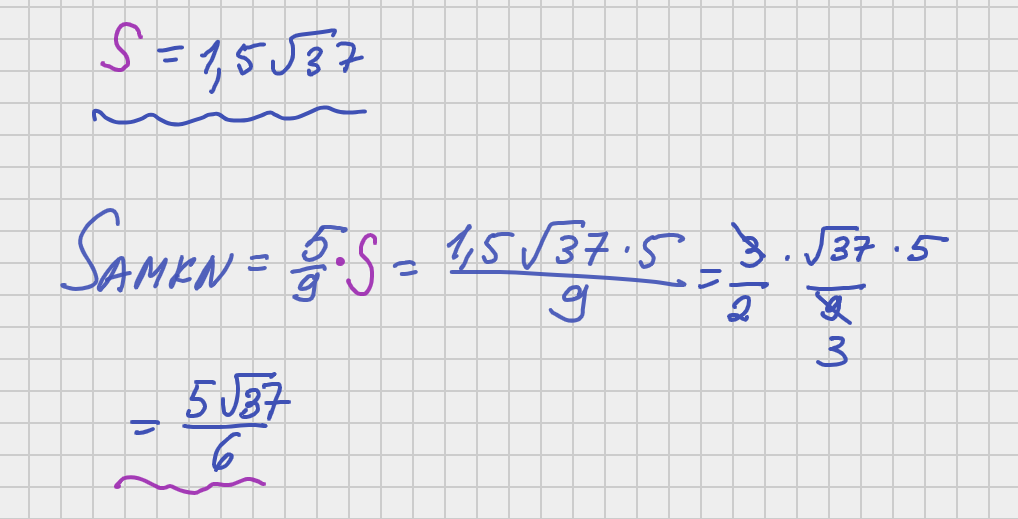 S = 1,5 √37
S AMKN = 5/9 · S = 1,5 √37 · 5 / 9 = 3/2 · √37 · 5 / 9 3
= 5 √37 / 6